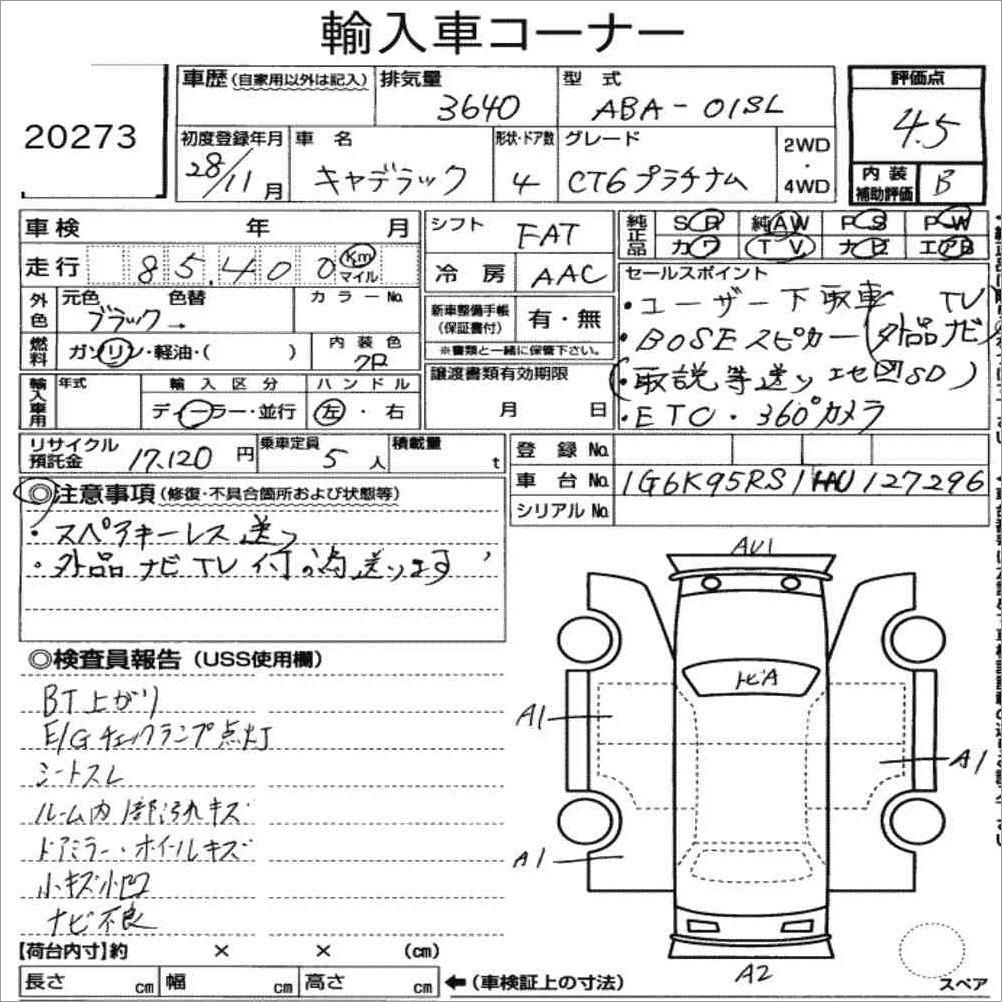 輸入車コーナー
20273
車歴(自家用以外は記入) 排気量 3640 型式 ABA-01SL
評価点 4.5
初度登録年月 28/11月 車名 キャデラック 形状・ドア数 4 グレード CT6プラチナム 2WD・4WD
内装補助評価 B
車検 年 月
走行 85,400 Km マイル
シフト FAT
冷房 AAC
純正品 SR 純AW PS PW
カワ TV ナビ エアB
外色 元色 色替 カラーNo.
ブラック→
燃料 ガソリン・軽油・( ) 内装色 クロ
新車整備手帳(保証書付) 有・無
※書類と一緒に保管下さい。
セールスポイント
・ユーザー下取車 TV
・BOSEスピカー(外品ナビ
(・取説等送り 地図SD)
・ETC・360°カメラ
輸入車用 年式 輸入区分 ハンドル
ディーラー・並行 左・右
譲渡書類有効期限
月 日
リサイクル預託金 17,120円 乗車定員 5人 積載量 t
登録No.
車台No. 1G6K95RS1HU127296
シリアルNo.
◎注意事項(修復・不具合箇所および状態等)
・スペアキーレス送り
・外品ナビTV付の為送ります
◎検査員報告(USS使用欄)
BT上がり
E/Gチェックランプ点灯
シートスレ
ルーム内1部汚れキズ
ドアミラー・ホイールキズ
小キズ小凹
ナビ不良
AU1
トビA
A1
A1
A1
A2
スペア
【荷台内寸】約 × × (cm)
長さ cm 幅 cm 高さ cm ←(車検証上の寸法)